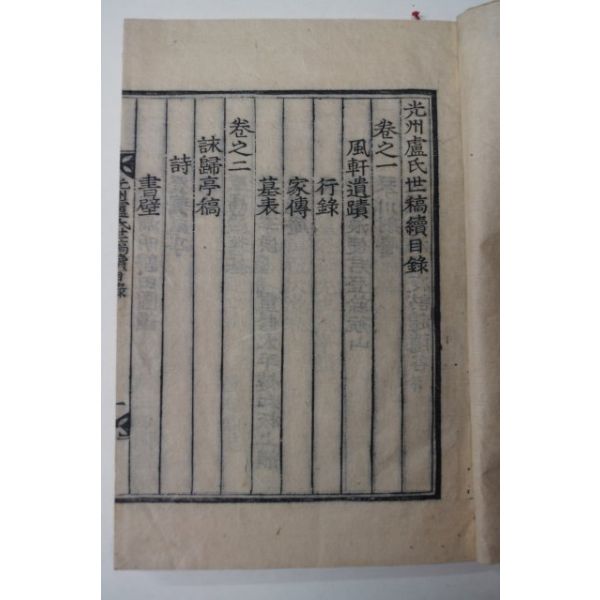 光州盧氏世稿續目錄
卷之一
風軒遺蹟
行錄
家傳
墓表
卷之二
詠歸亭稿
詩
書壁
光州盧氏世稿續目錄
一